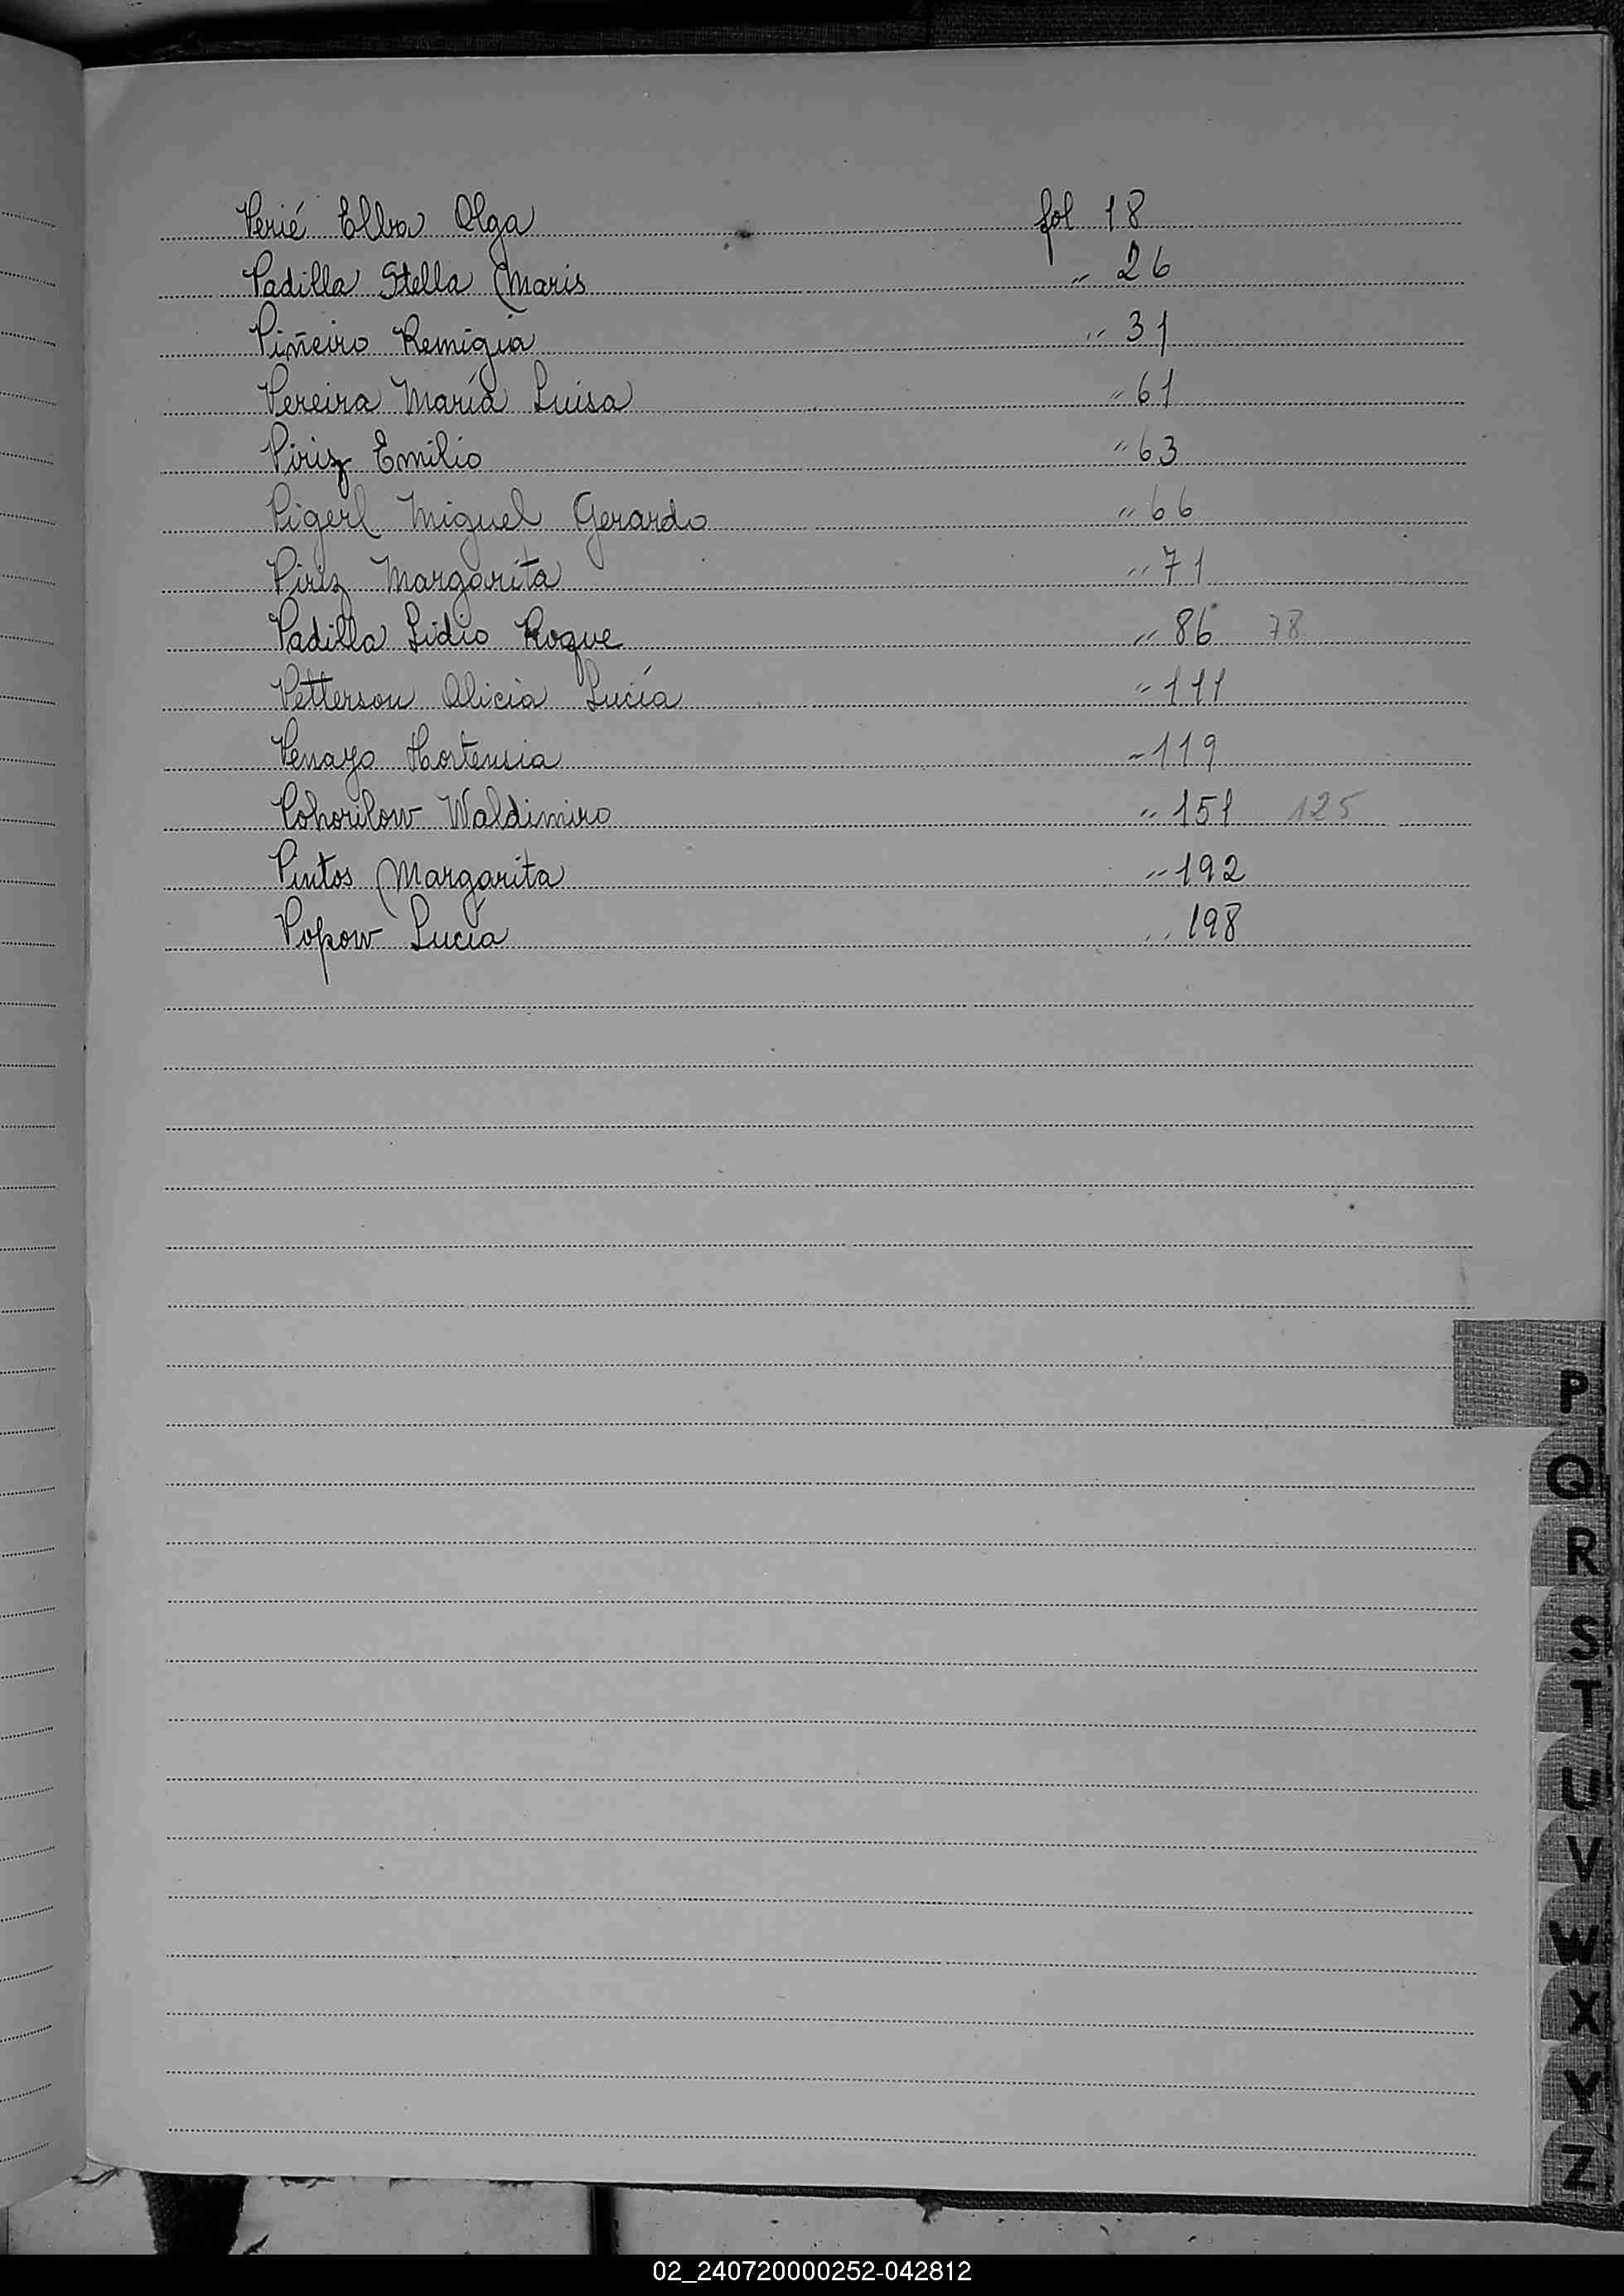 Perié Elba Olga fol 18
Padilla Stella Maris " 26
Piñeiro Remigia " 31
Pereira María Luisa " 61
Piriz Emilio " 63
Pigerl Miguel Gerardo " 66
Piriz Margarita " 71
Padilla Lidio Roque " 86 78
Petterson Alicia Lucía " 111
Penayo Hortensia " 119
Pohorilow Waldimiro " 151 125
Pintos Margarita " 192
Popow Lucía " 198
P
Q
R
S
T
U
V
W
X
Y
Z
02_240720000252-042812